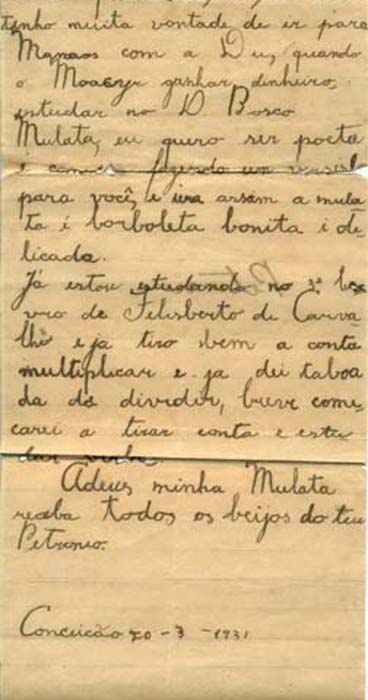 tenho muita vontade de ir para
Manaos com a Deu, quando
o Moacyr ganhar dinheiro,
estudar no D Bosco
Mulata, eu quero ser poeta
e comecei fazendo un
para você, e ira assim a mula
ta é borboleta bonita i de
licada.
Já estou estudando no 3º li
vro de Felisberto de Carva
lho e ja tiro bem a conta
multiplicar e ja dei taboa
da de divider, breve come
carei a tirar conta e estu
dar verbo.
Adeus minha Mulata
receba todos os beijos do teu
Petronio.
Conceicão 20-3-1931